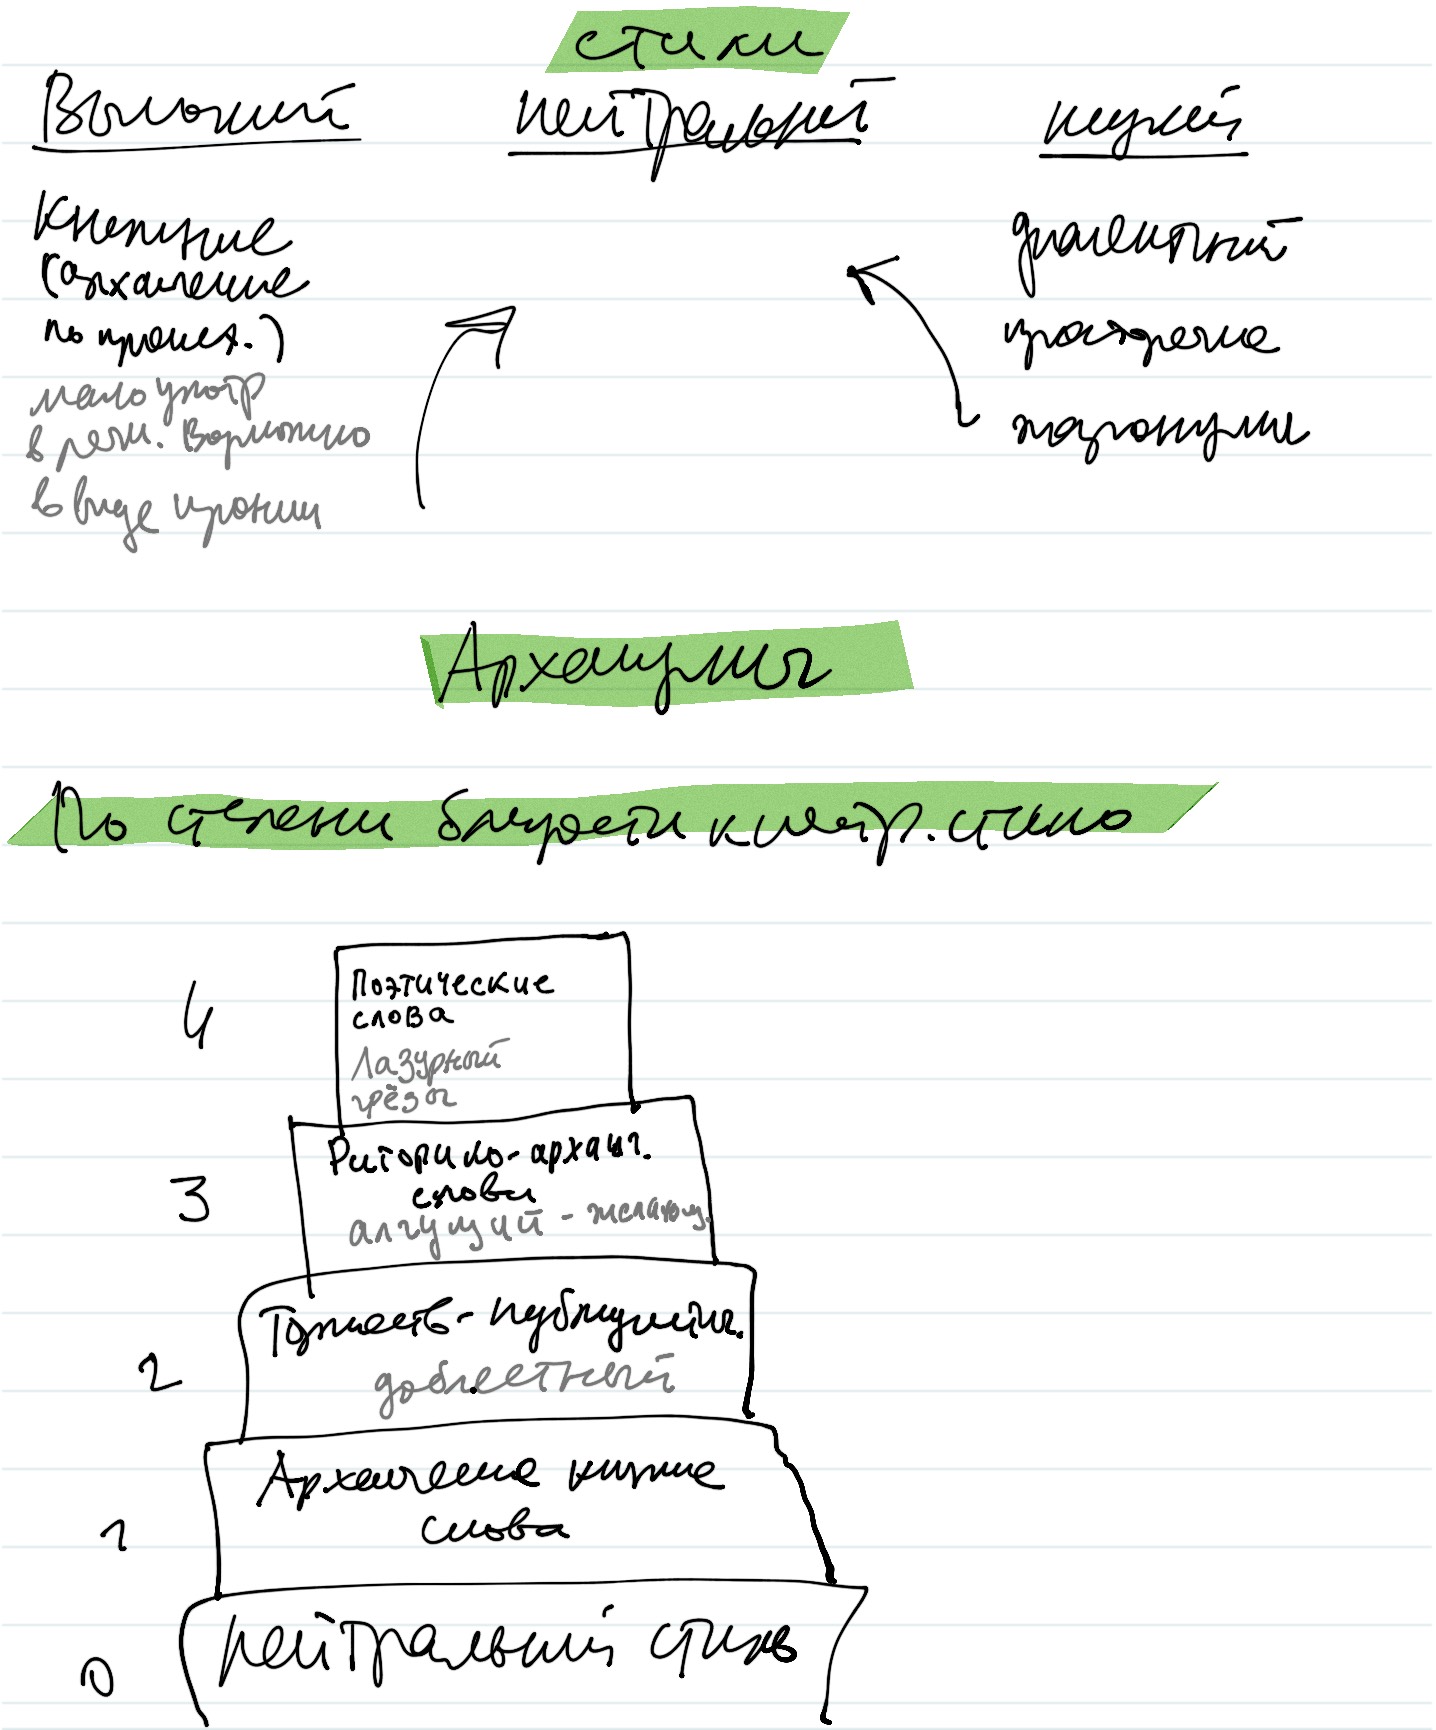 стили
Высокий нейтральный низкий
Книжные
(архаические
по происх.)
мало употр
в речи. Возможно
в виде иронии
диалектный
просторечие
жаргонизмы
Архаизмы
По степени близости к нейтр. стилю
4
Поэтические
слова
Лазурный
грёзы
3
Риторико-архаич.
слова
алчущий - желающ.
2
Торжеств-публицистич.
доблестный
1
Архаические книжные
слова
0
нейтральный стиль